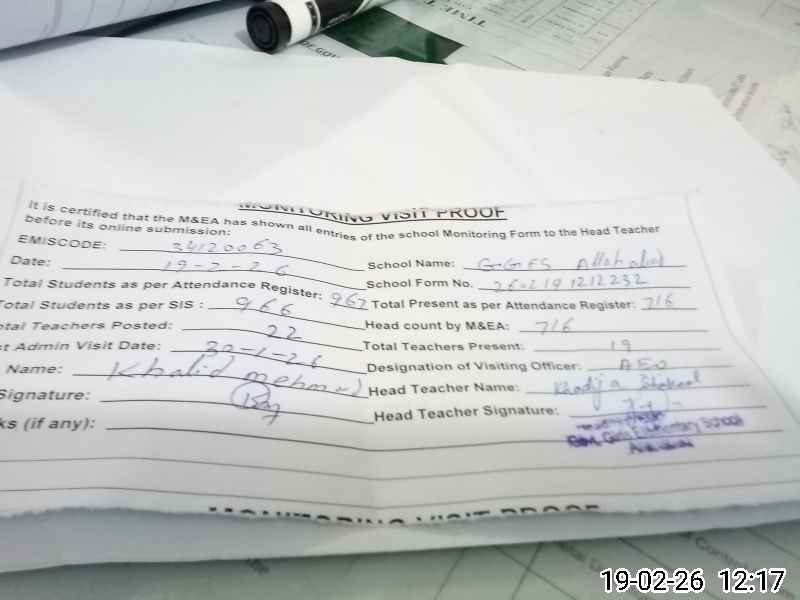 TIME
MONITORING VISIT PROOF
It is certified that the M&EA has shown all entries of the school Monitoring Form to the Head Teacher
before its online submission:
EMISCODE: 34120063
School Name: GGES Allahabad
Date: 19-2-26
School Form No. 260219 1212232
Total Students as per Attendance Register: 967
Total Present as per Attendance Register: 716
Total Students as per SIS: 966
Head count by M&EA: 716
otal Teachers Posted: 22
Total Teachers Present: 19
t Admin Visit Date: 30-1-26
Designation of Visiting Officer: AEO
Name: Khalid mehmood
Head Teacher Name: Khadija Shakeel
Signature:
Head Teacher Signature:
ks (if any):
Govt. Girls Elementary School
MONITORING VISIT PROOF
19-02-26 12:17